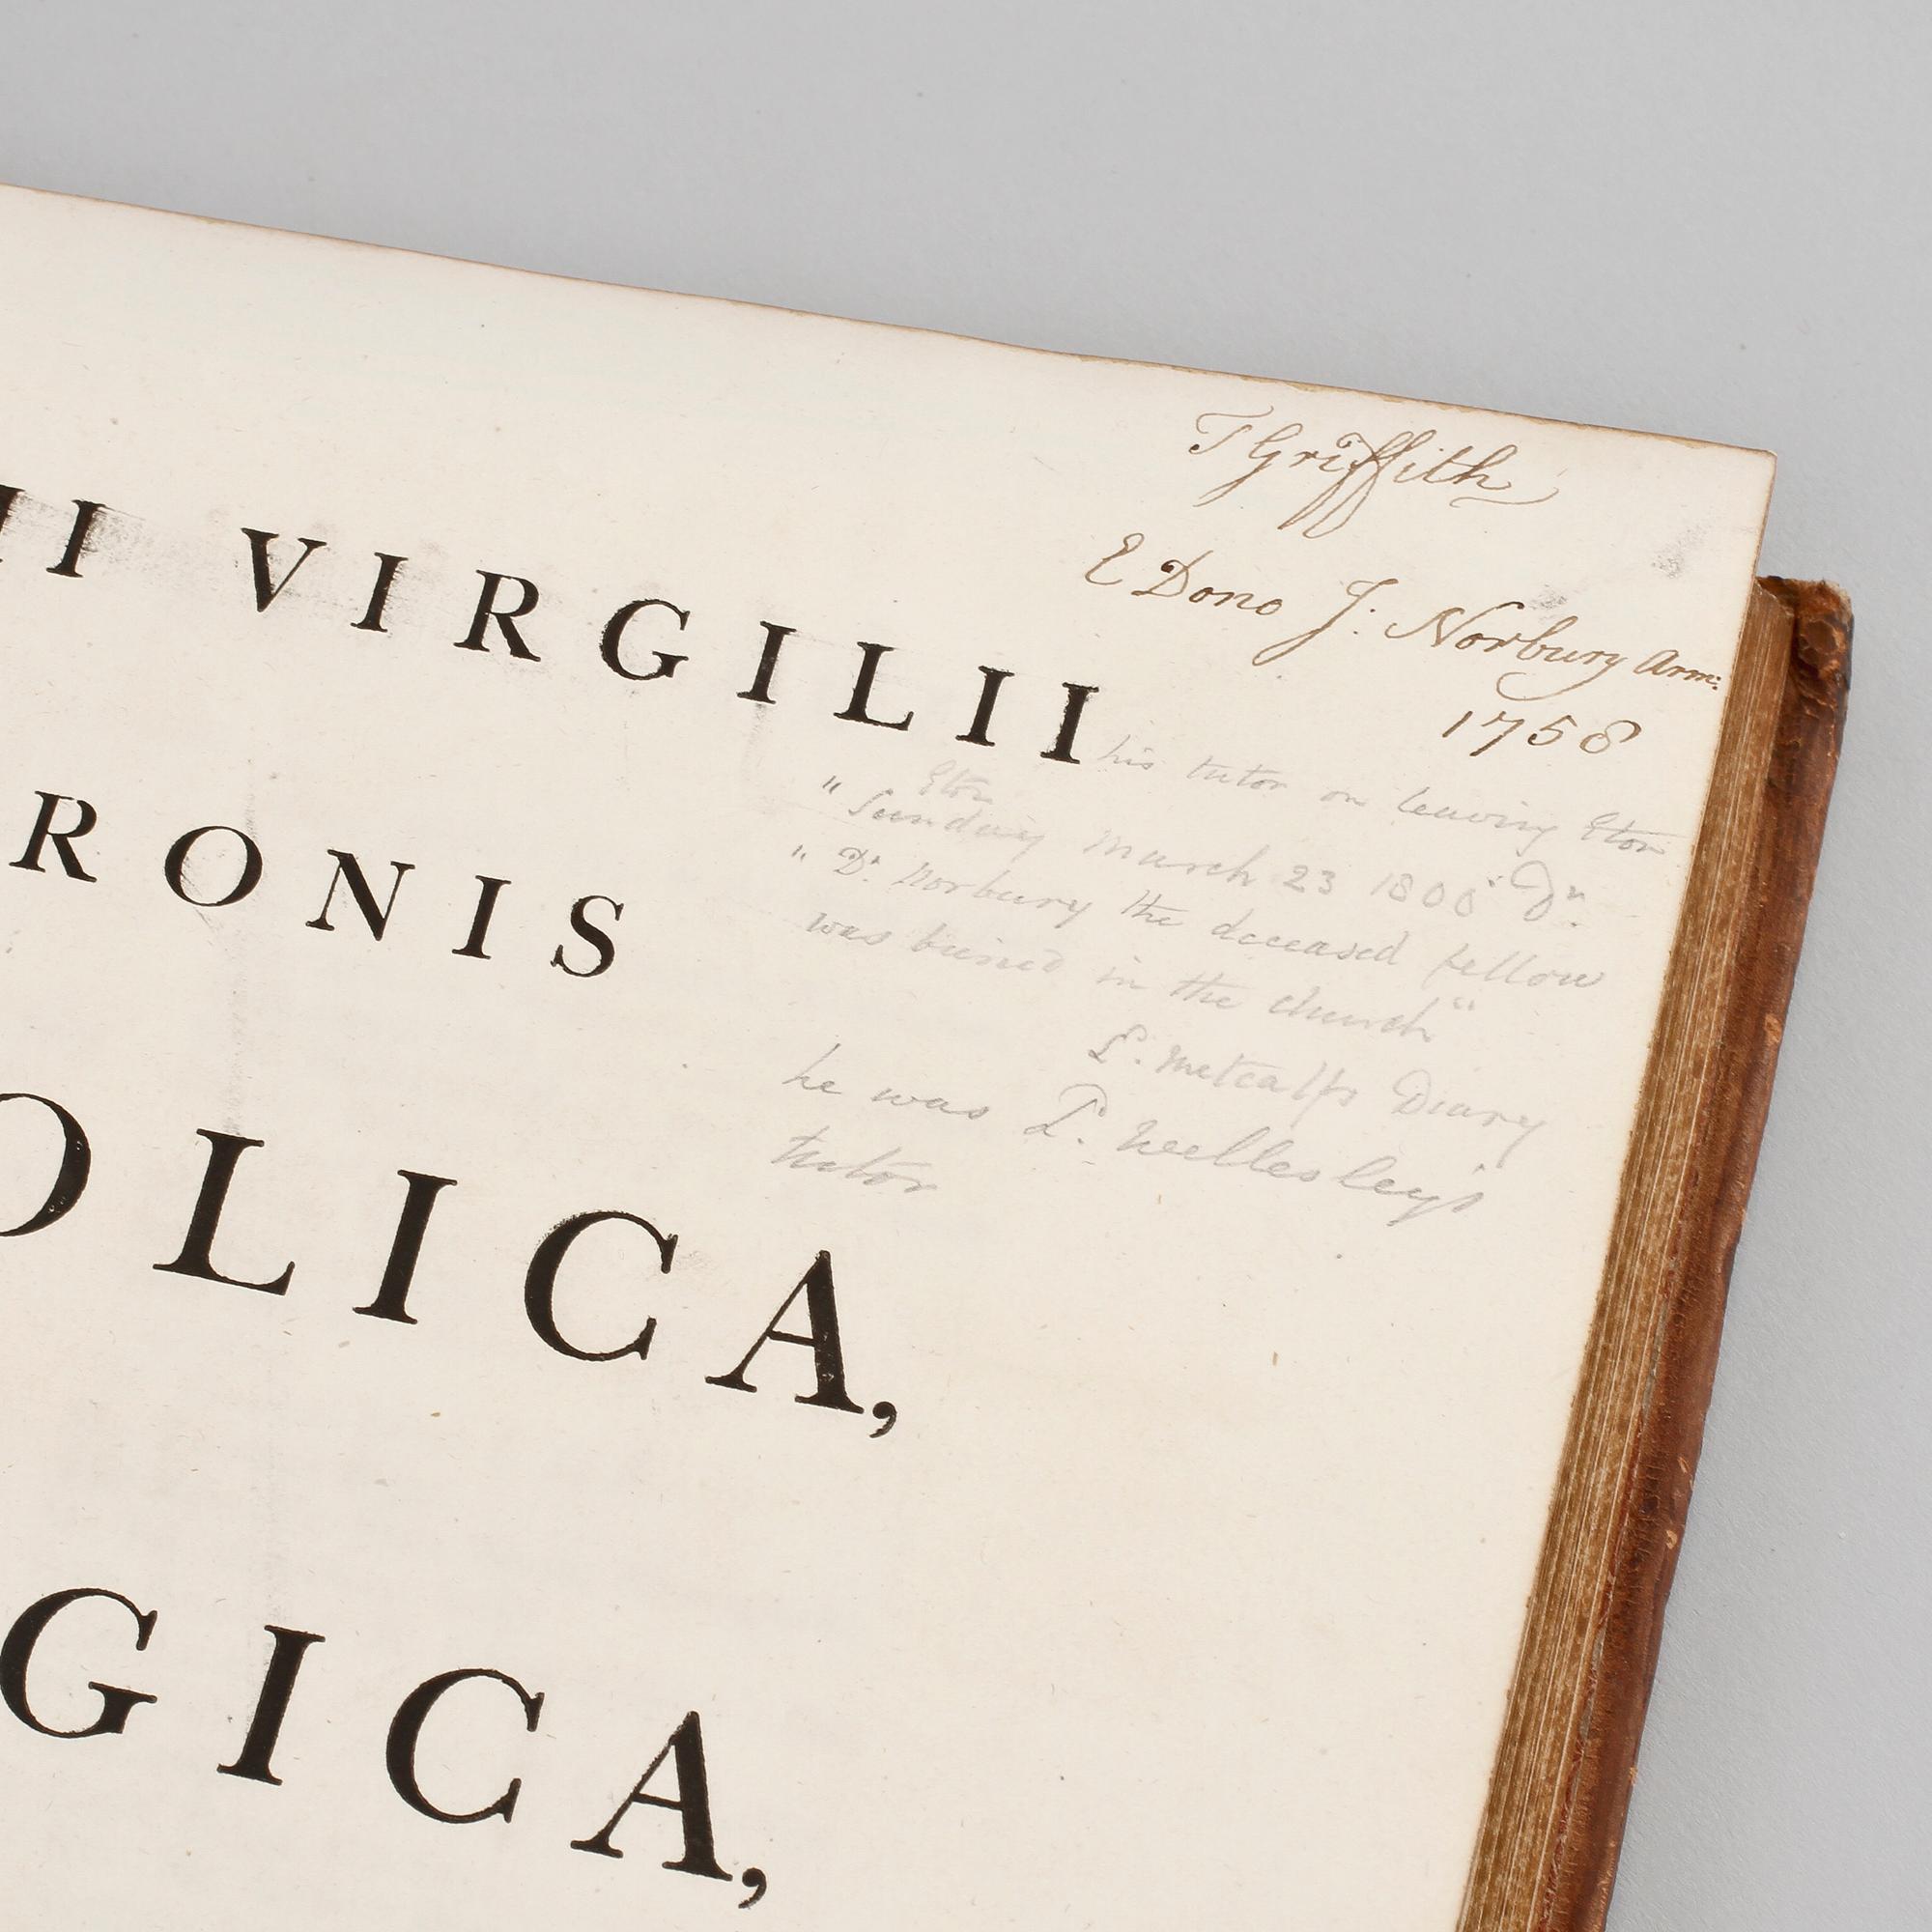 T Griffith
E Dono J: Norbury Arm:
1758
II VIRGILII
his tutor on leaving Eton
Eton
" Sunday March 23 1800" Dr.
RONIS
" Dr. Norbury the deceased fellow
was buried in the church"
Metcalfs Diary
he was Wellesleys
tutor
OLICA,
GICA,